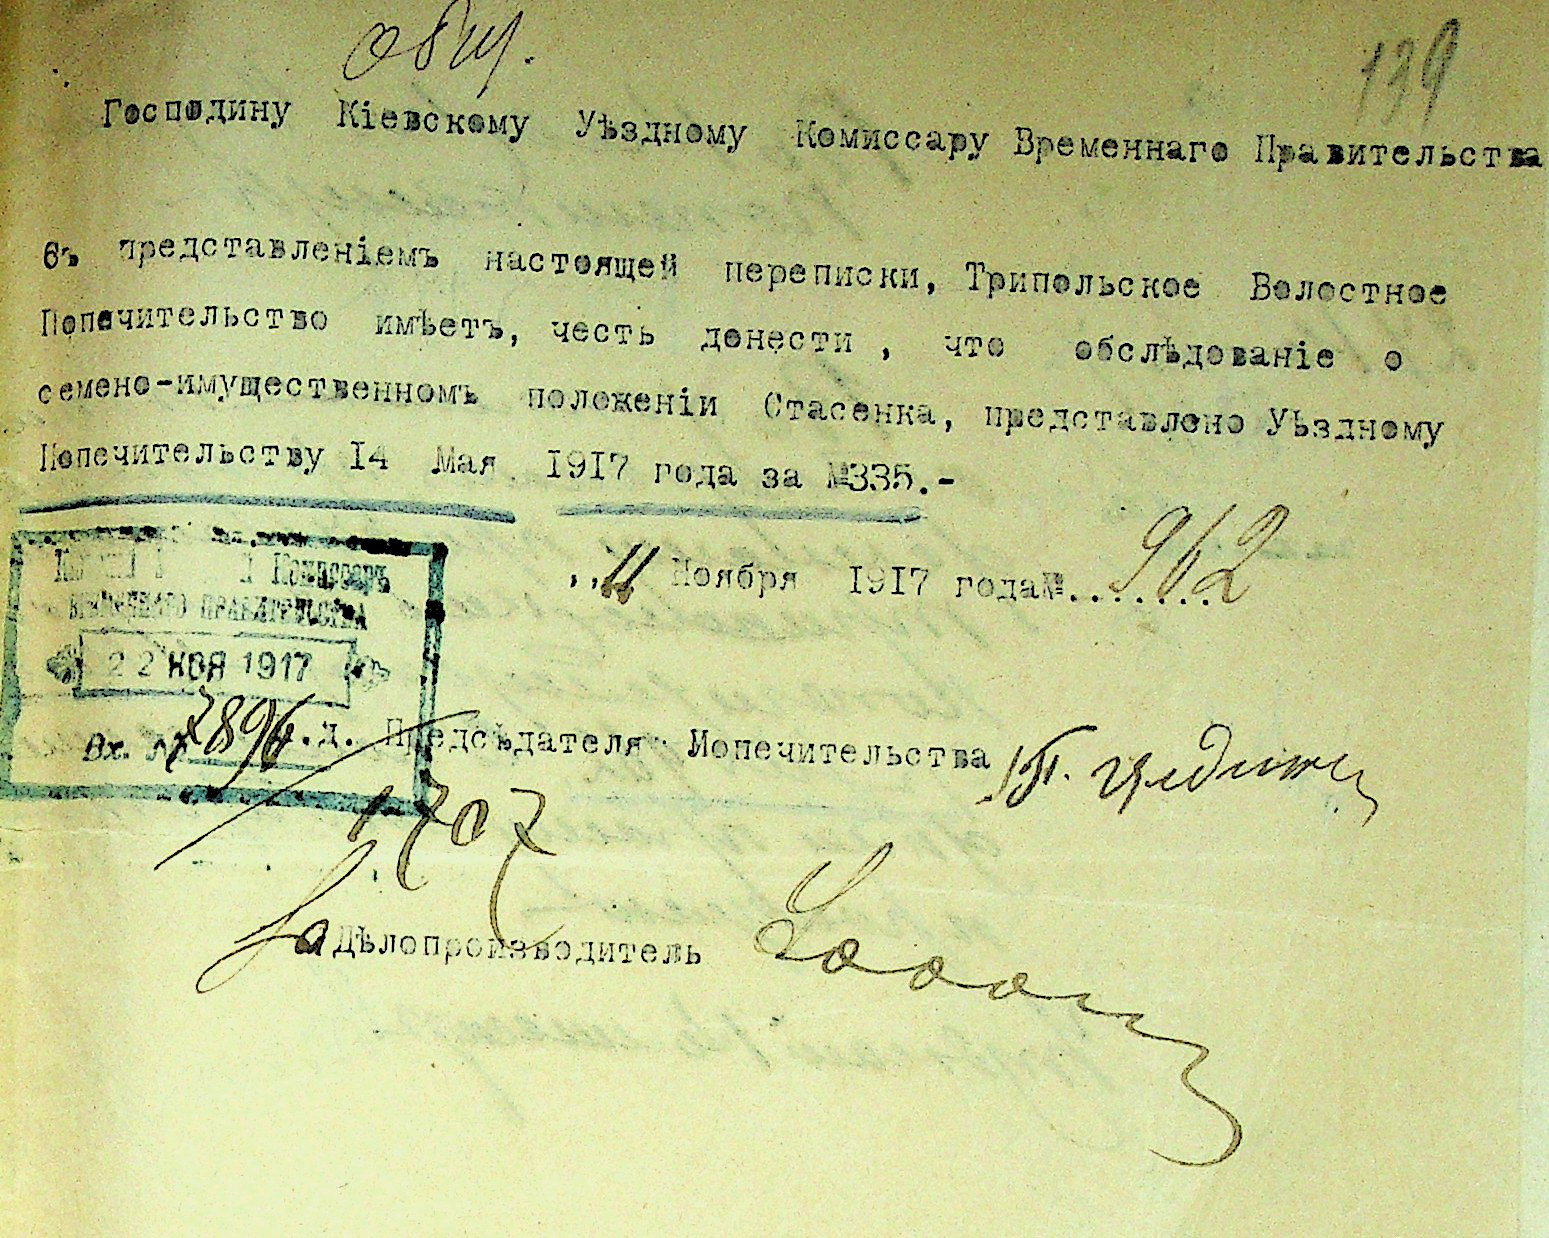 139
Господину Кіевскому Уѣздному Комиссару Временнаго Правительства
Съ представленіемъ настоящей переписки, Трипольское Волостное
Попечительство имѣетъ, честь донести , что обслѣдованіе о
семено-имущественномъ положеніи Стасенка, представлено Уѣздному
Попечительству 14 Мая 1917 года за №335.-
„11 Ноября 1917 года №.......962
Комиссаръ
ВРЕМЕННАГО ПРАВИТЕЛЬСТВА
22 НОЯ 1917
Вх. № 7896
.д. Предсѣдателя Попечительства П.
1707
За Дѣлопроизводитель